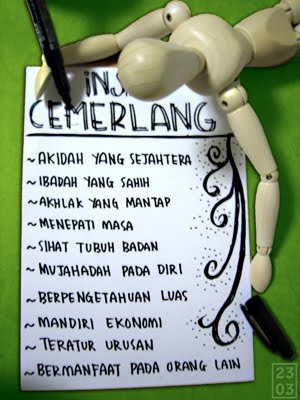 INS
CEMERLANG
~AKIDAH YANG SEJAHTERA
~IBADAH YANG SAHIH
~AKHLAK YANG MANTAP
~MENEPATI MASA
~SIHAT TUBUH BADAN
~MUJAHADAH PADA DIRI
~BERPENGETAHUAN LUAS
~MANDIRI EKONOMI
~TERATUR URUSAN
~BERMANFAAT PADA ORANG LAIN
23
03